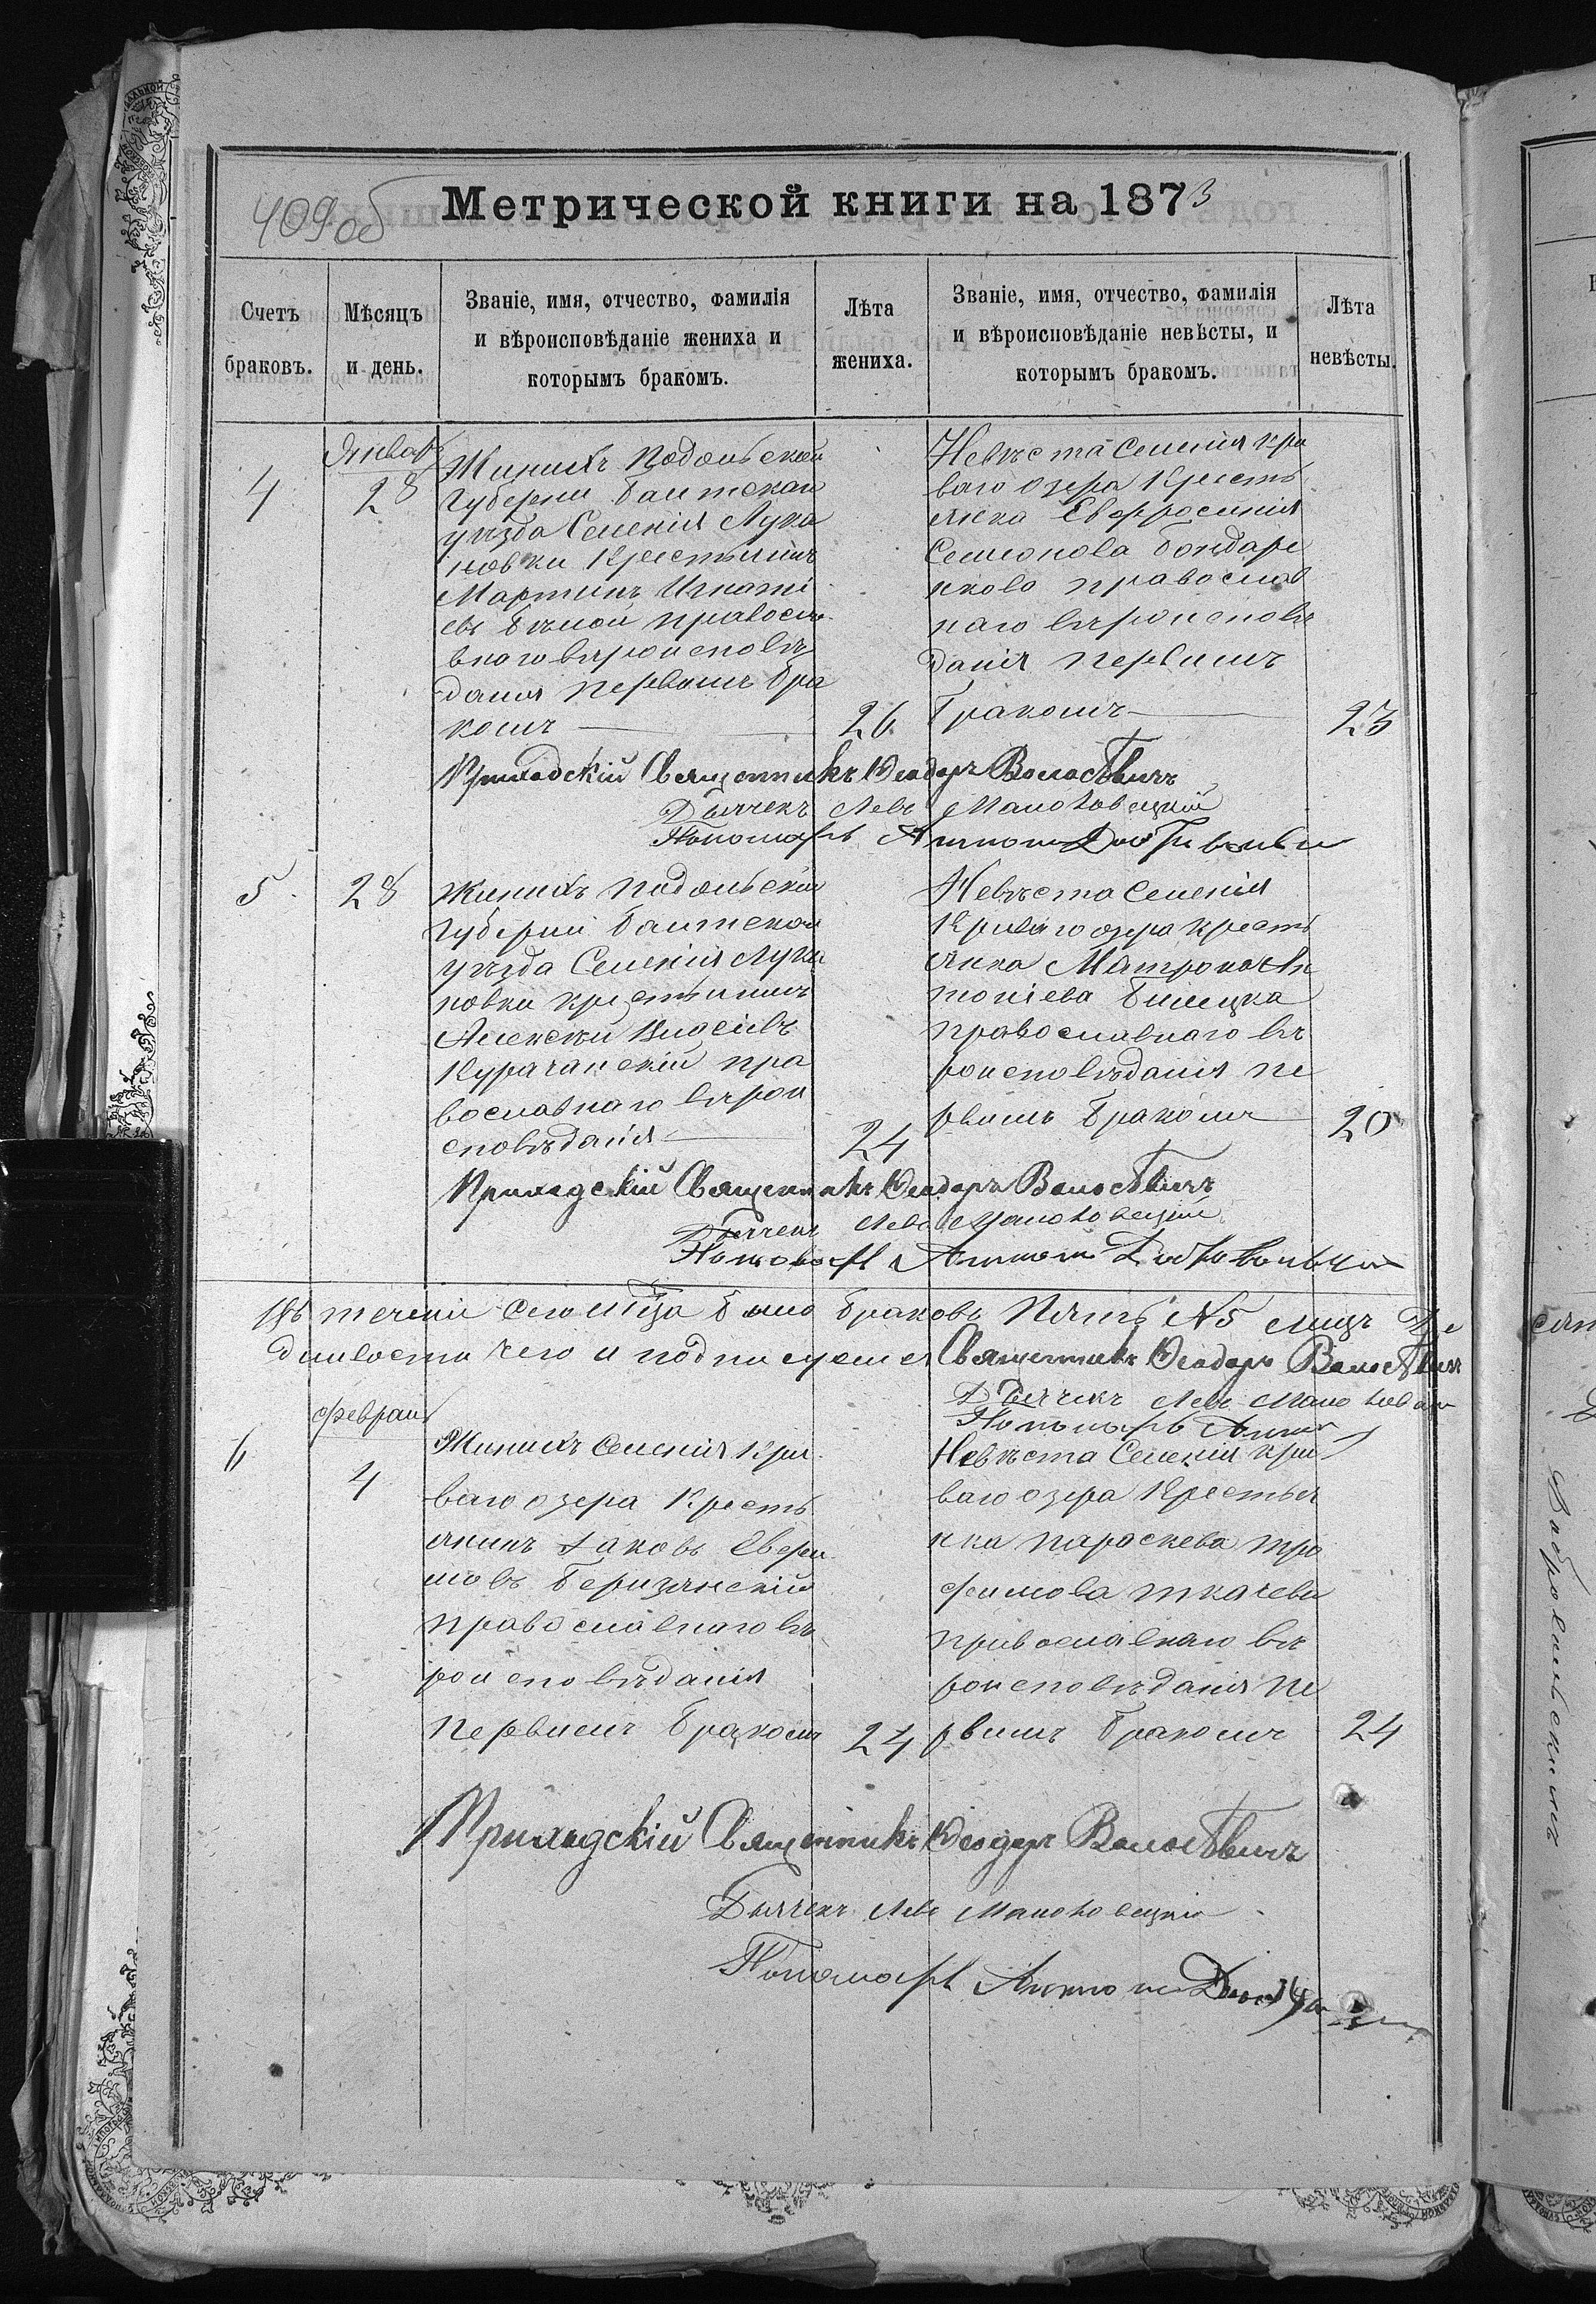 409об
Метрической книги на 1873
Счетъ браковъ.
Мѣсяцъ и день.
Званіе, имя, отчество, фамилія и вѣроисповѣданіе жениха и которымъ бракомъ.
Лѣта жениха.
Званіе, имя, отчество, фамилія и вѣроисповѣданіе невѣсты, и которымъ бракомъ.
Лѣта невѣсты.
Январь
4
28
Жинихъ Подольской
Губерни Балтскаи
уезда Селенія Лука
новки Крестьянинъ
Мартинъ Игнаті
евъ Білой правосла
внаго вѣроисповѣ
данія первимъ бра
комъ
26
Невѣста селенія Кри
ваго озера Кресть
янка Евфросинія
Семіонова Бондаре
нкова православ
наго вѣроисповѣ
данія первимъ
бракомъ
23
Приходскій Священникъ Ѳеодоръ
Дьячекъ Левъ Маньковецкій
Пономарь Антоній
5
28
Жинихъ Подольскои
Губерніи Балтскои
уѣзда Селенія Лука
новки крестьянинъ
Алексѣй
Курачанскій пра
вославнаго вѣрои
сповѣданія
24
Невѣста Селенія
Криваго озера кресть
янка Матрона Ан
тоніева Билецка
православнаго вѣ
роисповѣданія пе
рвимъ бракомъ
20
Приходскій Священникъ Ѳеодоръ
Дьячекъ Левъ Маньковецкій
Пономарь Антоній
Въ теченіи сего мѣца было браковъ Пять №5 лицъ Де
чего и подписуемся Священникъ Ѳеодоръ
Дьячекъ Левъ
Пономарь Антоній
Февраль
6
4
Жинихъ Селенія Кри
ваго озера Кресть
янинъ Іаковъ Ефри
мовъ Беризянскій
православнаго вѣ
роисповѣданія
первимъ бракомъ
24
Невѣста Селенія Кри
ваго озера Крестья
нка Параскева Тро
фимова Ткачева
православнаго вѣ
роисповѣданія пе
рвимъ бракомъ
24
Приходскій Священникъ Ѳеодоръ
Дьячекъ Левъ Маньковецкій
Пономарь Антоній